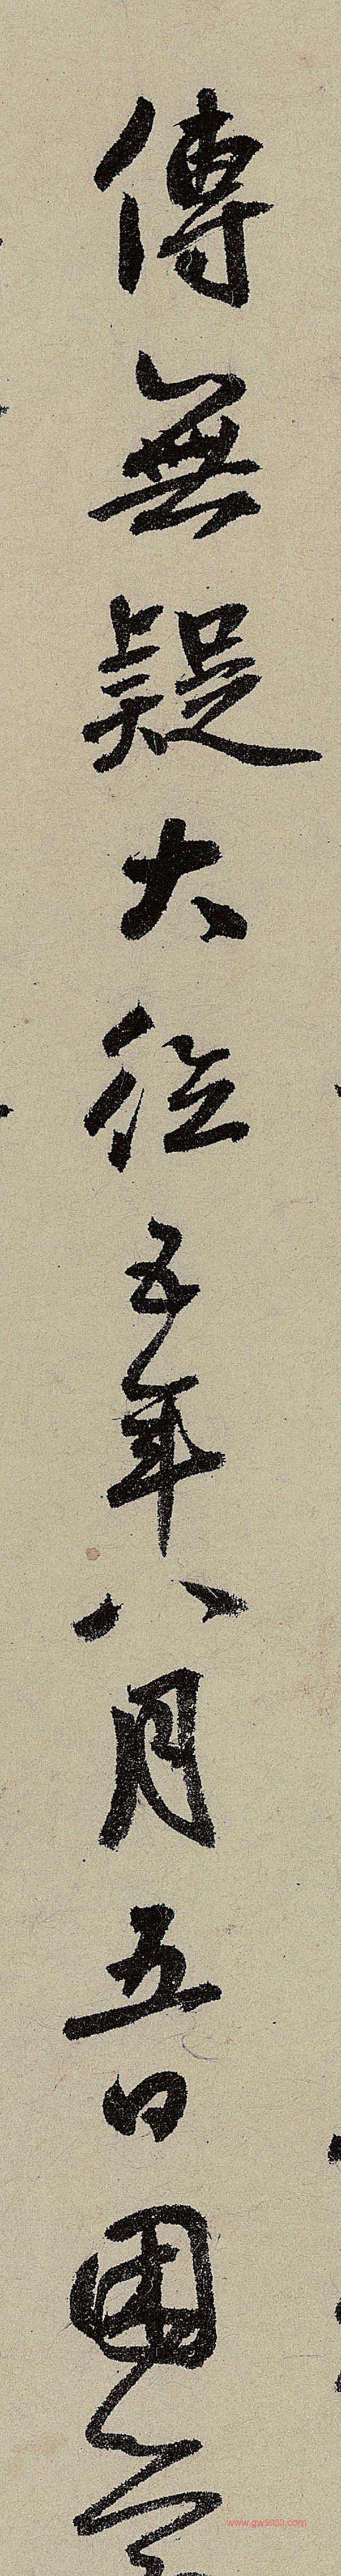 傳無疑大德五年八月五日困
www.gw5000.com